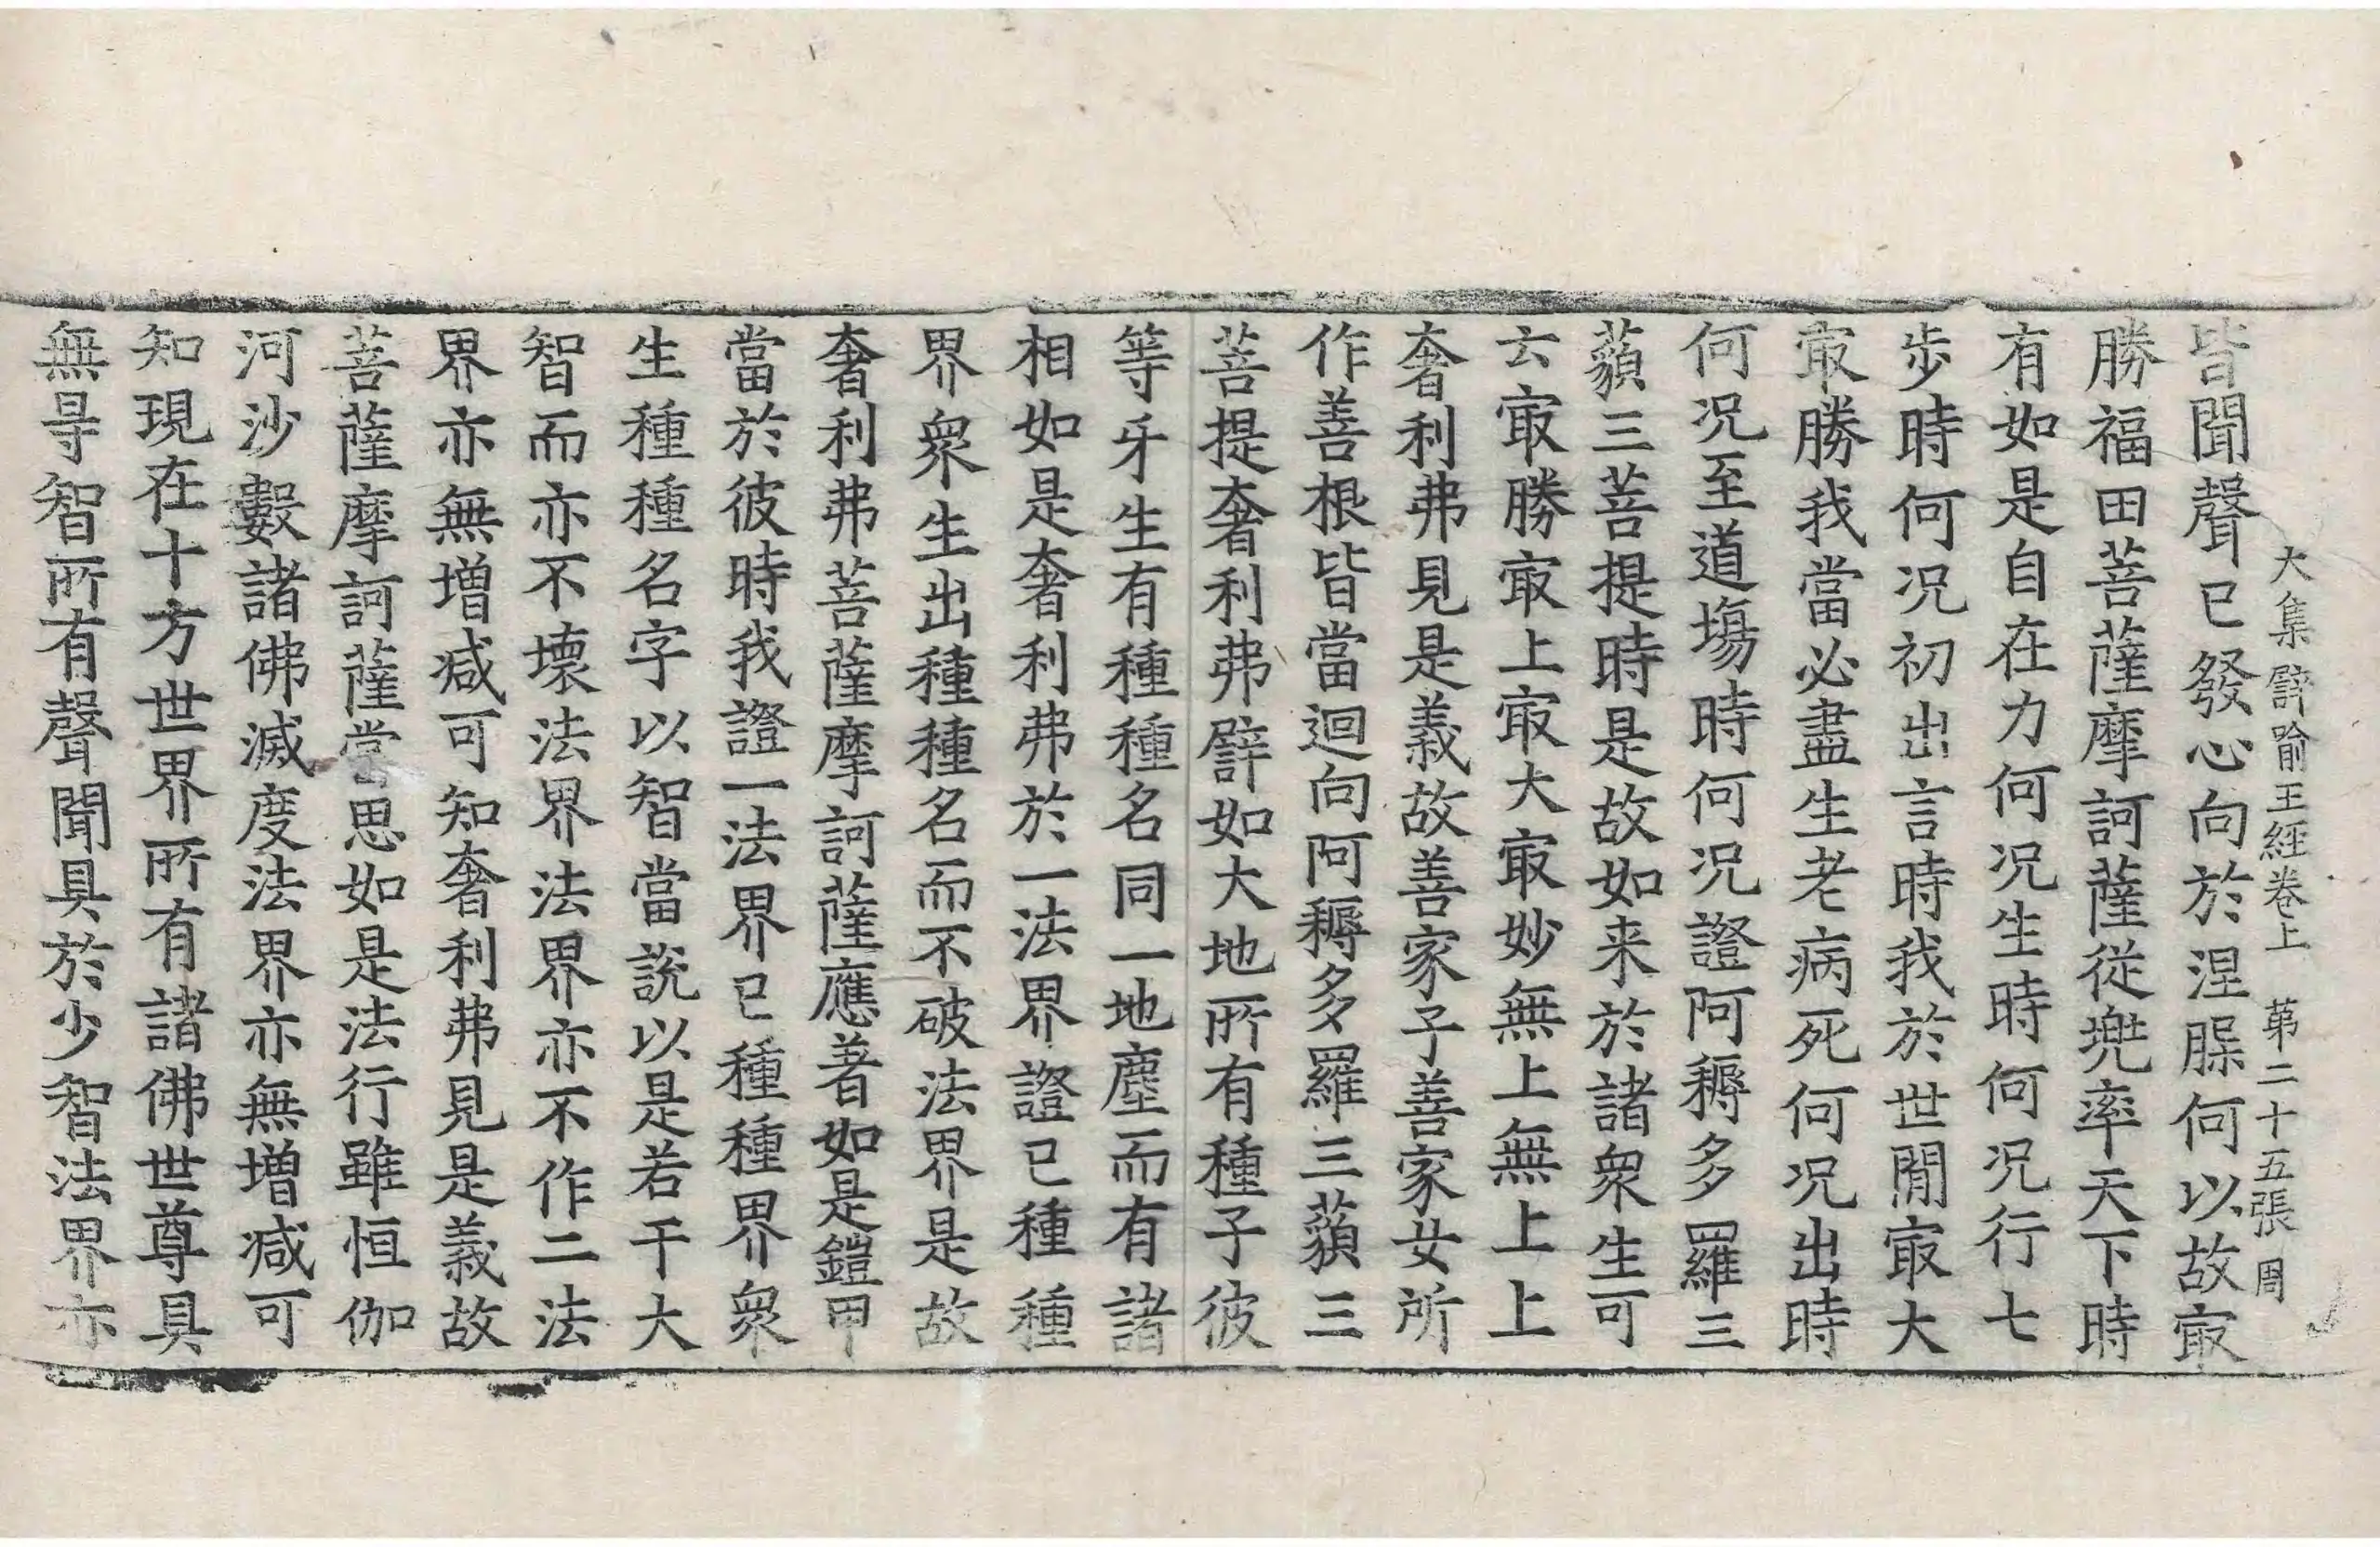 大集譬喻王經卷上　第二十五張　周
皆聞聲已發心向於涅槃何以故㝡
勝福田菩薩摩訶薩從兜率天下時
有如是自在力何况生時何况行七
步時何况初出言時我於世閒㝡大
㝡勝我當必盡生老病死何况出時
何况至道場時何况證阿耨多羅三
藐三菩提時是故如来於諸衆生可
云㝡勝㝡上㝡大㝡妙無上無上上
奢利弗見是義故善家子善家女所
作善根皆當迴向阿耨多羅三藐三
菩提奢利弗譬如大地所有種子彼
等牙生有種種名同一地塵而有諸
相如是奢利弗於一法界證已種種
界衆生出種種名而不破法界是故
奢利弗菩薩摩訶薩應著如是鎧甲
當於彼時我證一法界已種種界衆
生種種名字以智當說以是若干大
智而亦不壞法界法界亦不作二法
界亦無增减可知奢利弗見是義故
菩薩摩訶薩當思如是法行雖恒伽
河沙數諸佛滅度法界亦無增减可
知現在十方世界所有諸佛世尊具
無㝵智所有聲聞具於少智法界亦